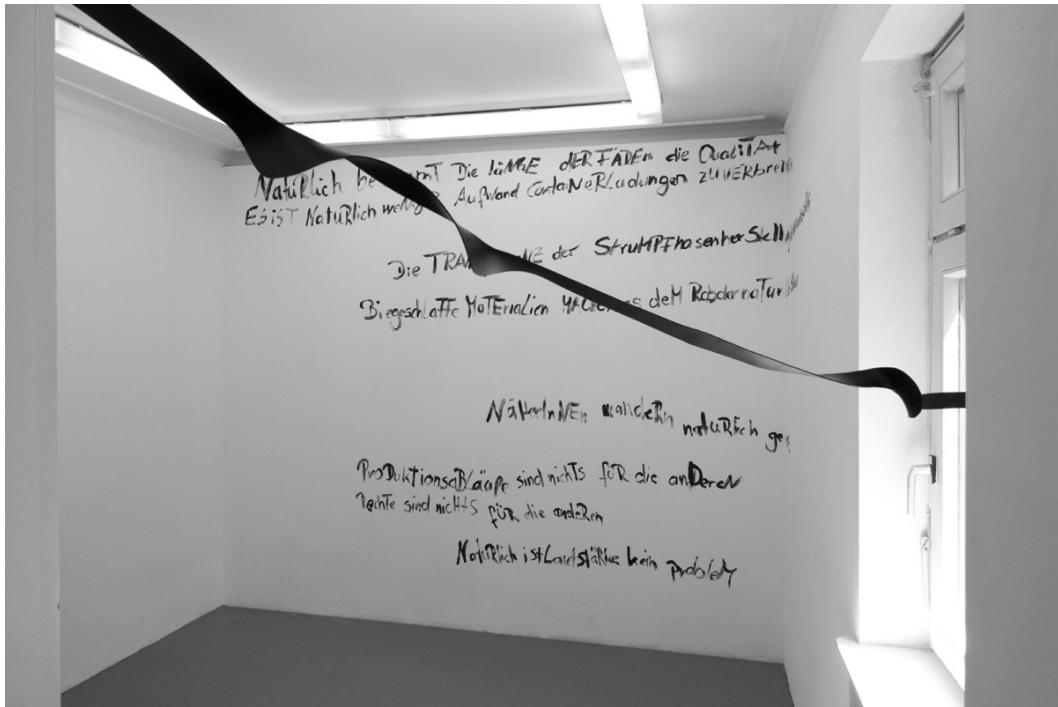 NatüRlich Die läNGE dER FÄDEN die QualiTÄt
ES iST NatüRlich weNigeR AufWand ContaiNeRLadungen ZU VERbrei
Die der StruMPFhosenherStell
BiegeschLaffe MaTERiaLien deM
NäherInNEn wandeRn natuRlich ge
ProDuktionsaBLäufe sind nichTs füR die anDereN
Rechte sind nicHtS füR die andeRen
NatüRlich ist LautstäRke kein problEM